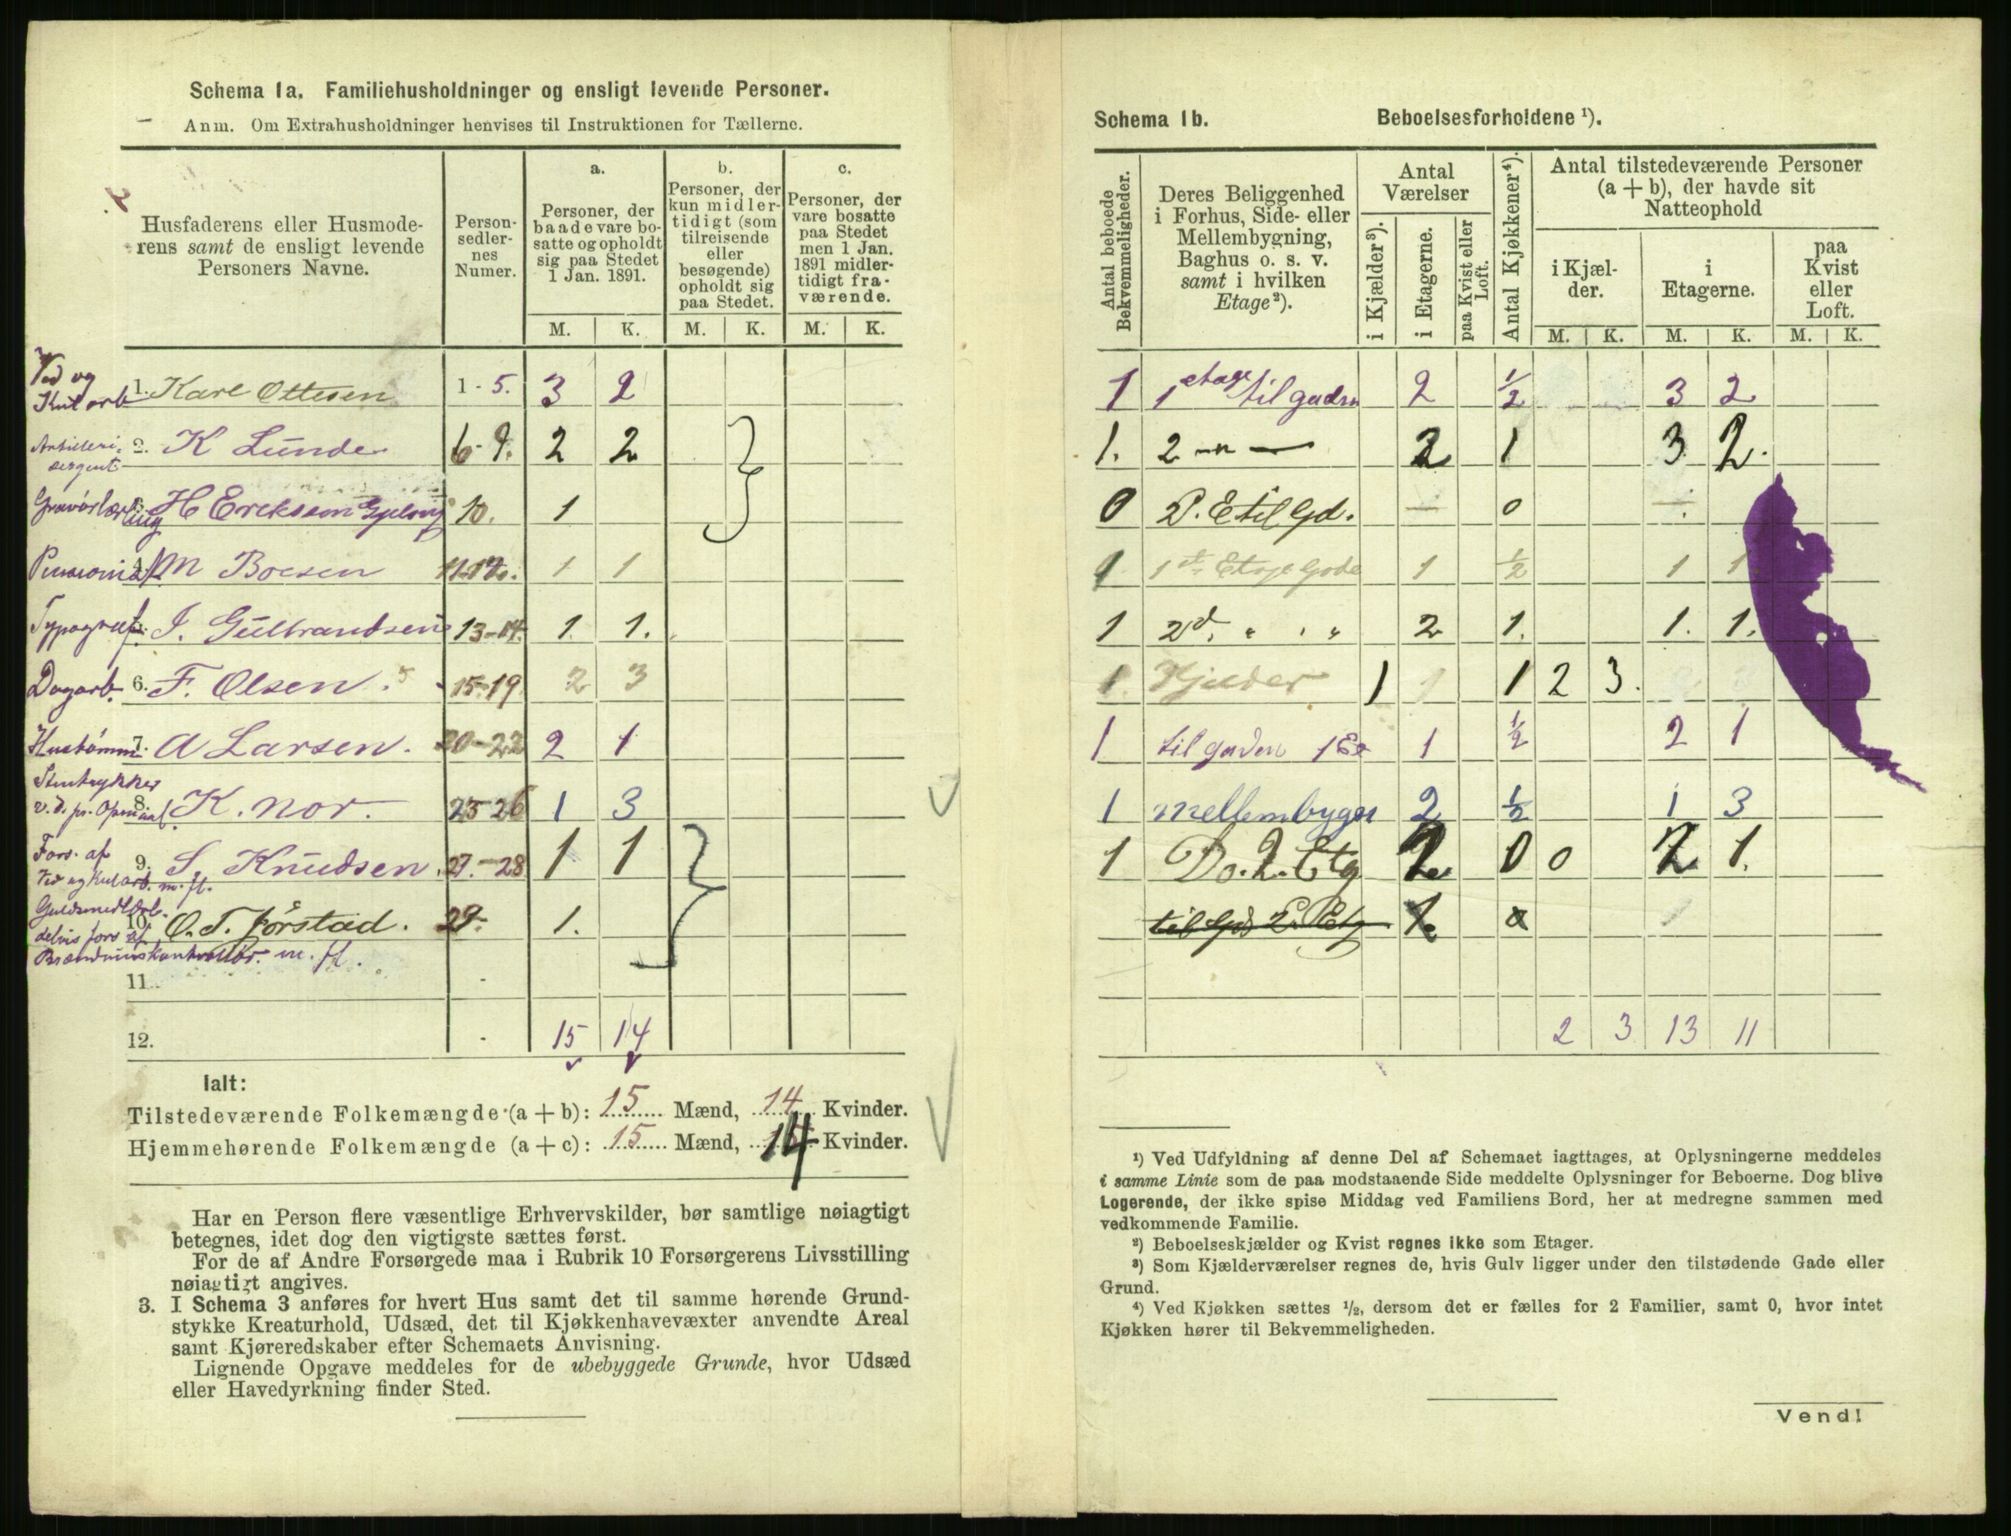 Schema 1a. Familiehusholdninger og ensligt levende Personer.
Anm. Om Extrahusholdninger henvises til Instruktionen for Tællerne.
Husfaderens eller Husmoderens samt de ensligt levende Personers Navne.
Personsedlernes Numer.
a.
Personer, der baade vare bosatte og opholdt sig paa Stedet 1 Jan. 1891.
b.
Personer, der kun midlertidigt (som tilreisende eller besøgende) opholdt sig paa Stedet.
c.
Personer, der vare bosatte paa Stedet men 1 Jan. 1891 midlertidigt fraværende.
M. K. M. K. M. K.
Ved og Kul arb 1. Karl Ottesen 1 - 5. 3 2
Artilleri sergent 2. K Lunde 6-9. 2 2
Gravørlærling 3. H Ereksson 10. 1
4. M Boesen 11-12. 1 1
Typograf. 5. J. Gulbrandsen 13-14. 1. 1.
Dagarb. 6. F. Olsen. 15-19 2 3
7. A Larsen. 20-22 2 1
Stentrykker 8. K. nor. 23-26 1 3
Fors. af Ved og Kularb. m. fl. 9. S. Knudsen. 27.-28 1 1
10. O. T. Jørstad. 29. 1.
delvis fors af m. fl.
11.
12. 15 14
Ialt:
Tilstedeværende Folkemængde (a + b): 15 Mænd, 14 Kvinder.
Hjemmehørende Folkemængde (a + c): 15 Mænd, 14 Kvinder.
Har en Person flere væsentlige Erhvervskilder, bør samtlige nøiagtigt
betegnes, idet dog den vigtigste sættes først.
For de af Andre Forsørgede maa i Rubrik 10 Forsørgerens Livsstilling
nøiagtigt angives.
3. I Schema 3 anføres for hvert Hus samt det til samme hørende Grund-
stykke Kreaturhold, Udsæd, det til Kjøkkenhavevæxter anvendte Areal
samt Kjøreredskaber efter Schemaets Anvisning.
Lignende Opgave meddeles for de ubebyggede Grunde, hvor Udsæd
eller Havedyrkning finder Sted.
Schema 1b. Beboelsesforholdene ¹).
Antal beboede Bekvemmeligheder.
Deres Beliggenhed i Forhus, Side- eller Mellembygning, Baghus o. s. v. samt i hvilken Etage ²).
Antal Værelser
i Kjælder ³).
i Etagerne.
paa Kvist eller Loft.
Antal Kjøkkener ⁴).
Antal tilstedeværende Personer (a + b), der havde sit Natteophold
i Kjælder.
i Etagerne.
paa Kvist eller Loft.
M. K. M. K. M. K.
1 1 etage til gaden 2 ½ 3 2
1. 2 -"- — 2 1 3 2.
0 2. E til Gd. — 0 —
1 1ste Etage Gade 1 ½ 1 1
1 2d. " " " 2 1. 1. 1.
1. Kjelder 1 1 1 2 3.
1 til gaden 1 Et 1 ½ 2 1
1 mellembygn 2 ½ 1 3
1 Do. 2. Etg 2 0 0 2 1.
2 3 13 11
¹) Ved Udfyldning af denne Del af Schemaet iagttages, at Oplysningerne meddeles
i samme Linie som de paa modstaaende Side meddelte Oplysninger for Beboerne. Dog blive
Logerende, der ikke spise Middag ved Familiens Bord, her at medregne sammen med
vedkommende Familie.
²) Beboelseskjælder og Kvist regnes ikke som Etager.
³) Som Kjælderværelser regnes de, hvis Gulv ligger under den tilstødende Gade eller
Grund.
⁴) Ved Kjøkken sættes ½, dersom det er fælles for 2 Familier, samt 0, hvor intet
Kjøkken hører til Bekvemmeligheden.
Vend!